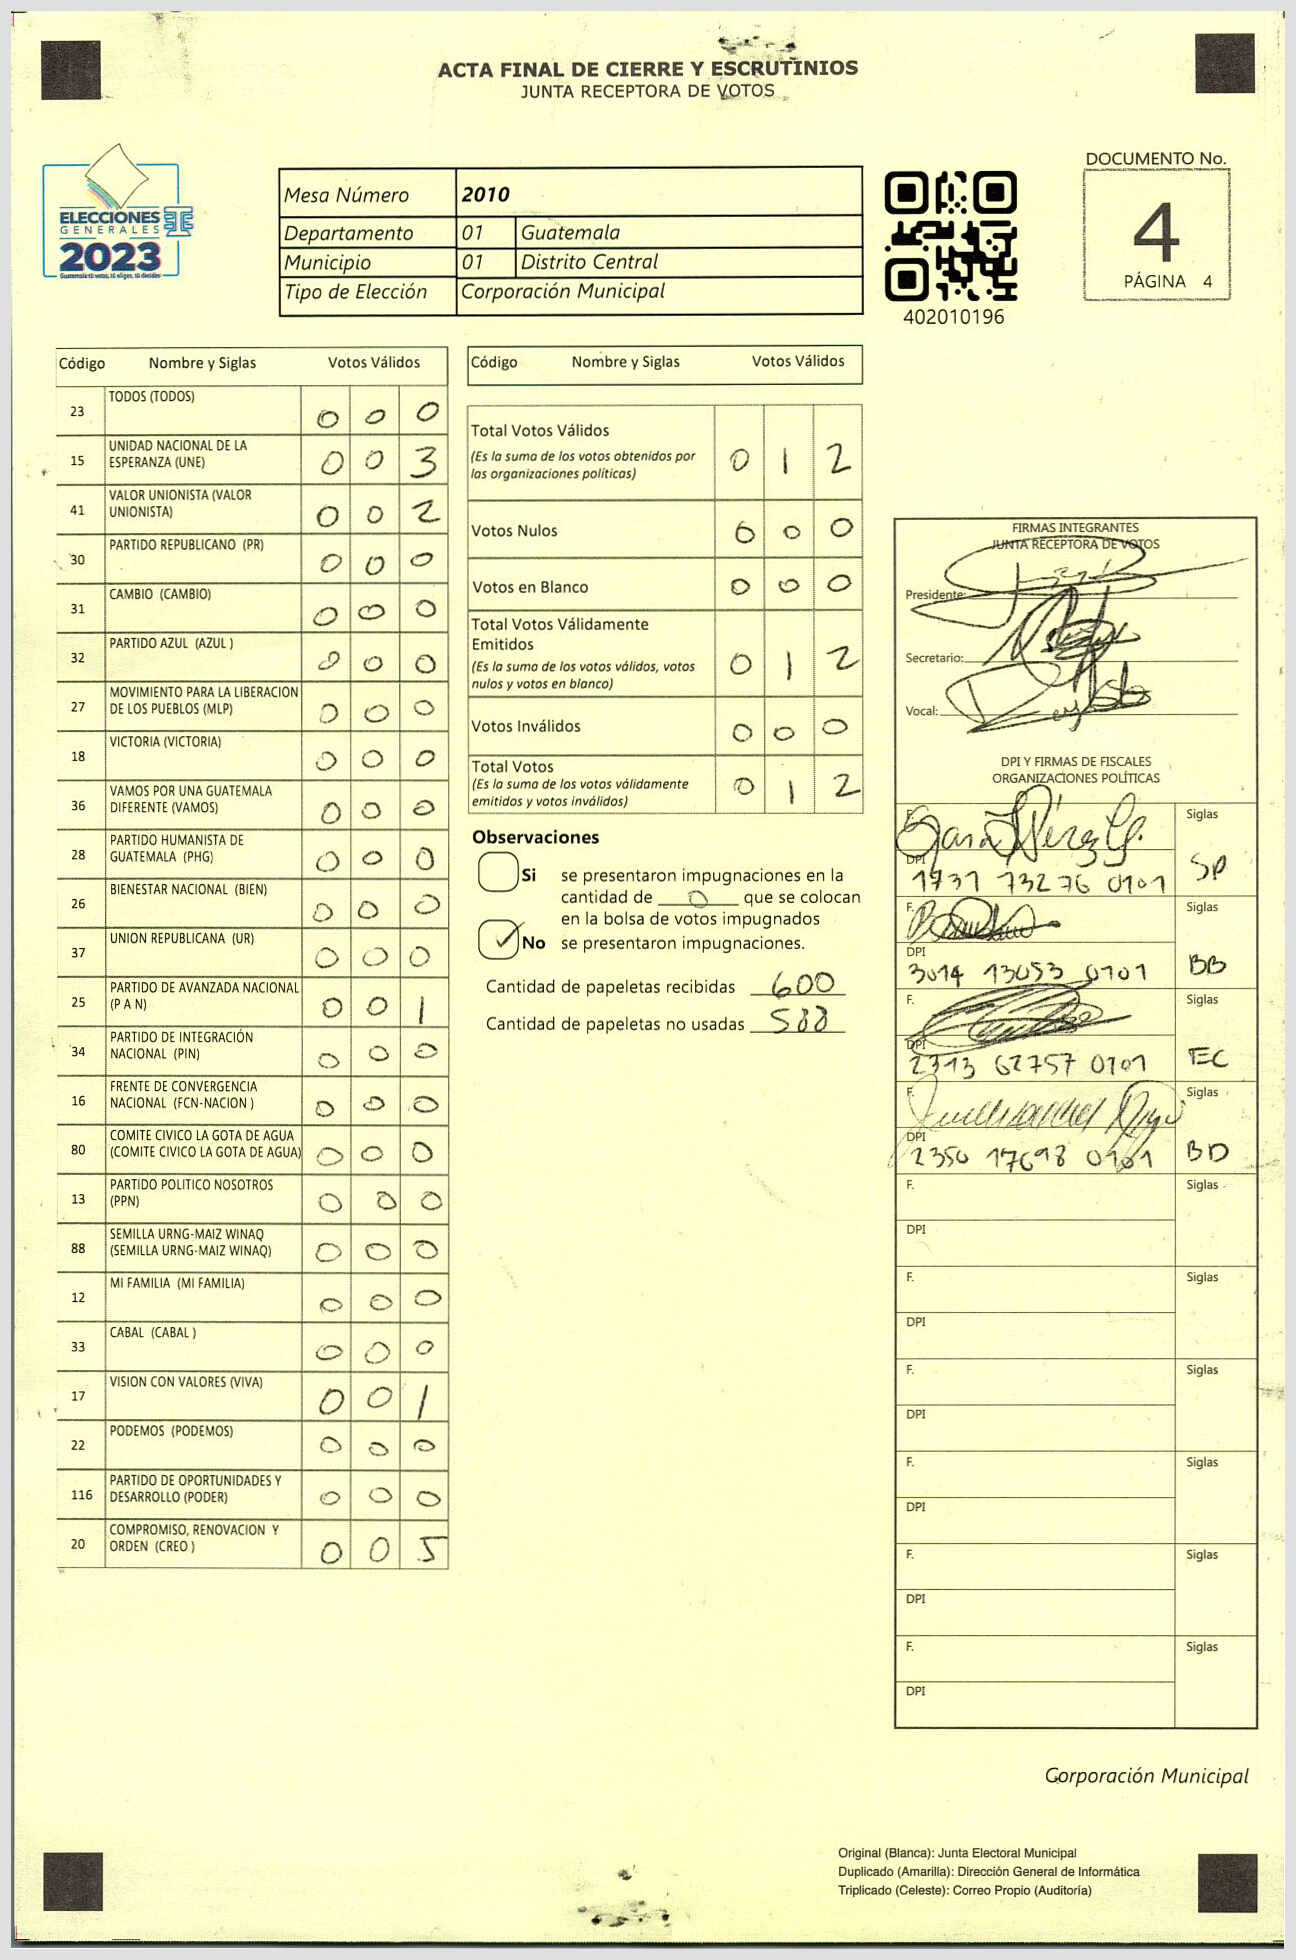 ACTA FINAL DE CIERRE Y ESCRUTINIOS
JUNTA RECEPTORA DE VOTOS
ELECCIONES
GENERALES
2023
Mesa Número 2010
Departamento 01 Guatemala
Municipio 01 Distrito Central
Tipo de Elección Corporación Municipal
402010196
DOCUMENTO No.
4
PÁGINA 4
Código Nombre y Siglas Votos Válidos
23 TODOS (TODOS) 0 0 0
15 UNIDAD NACIONAL DE LA
ESPERANZA (UNE) 0 0 3
41 VALOR UNIONISTA (VALOR
UNIONISTA) 0 0 2
30 PARTIDO REPUBLICANO (PR) 0 0 0
31 CAMBIO (CAMBIO) 0 0 0
32 PARTIDO AZUL (AZUL ) 0 0 0
27 MOVIMIENTO PARA LA LIBERACION
DE LOS PUEBLOS (MLP) 0 0 0
18 VICTORIA (VICTORIA) 0 0 0
36 VAMOS POR UNA GUATEMALA
DIFERENTE (VAMOS) 0 0 0
28 PARTIDO HUMANISTA DE
GUATEMALA (PHG) 0 0 0
26 BIENESTAR NACIONAL (BIEN) 0 0 0
37 UNION REPUBLICANA (UR) 0 0 0
25 PARTIDO DE AVANZADA NACIONAL
(P A N) 0 0 1
34 PARTIDO DE INTEGRACIÓN
NACIONAL (PIN) 0 0 0
16 FRENTE DE CONVERGENCIA
NACIONAL (FCN-NACION ) 0 0 0
80 COMITE CIVICO LA GOTA DE AGUA
(COMITE CIVICO LA GOTA DE AGUA) 0 0 0
13 PARTIDO POLITICO NOSOTROS
(PPN) 0 0 0
88 SEMILLA URNG-MAIZ WINAQ
(SEMILLA URNG-MAIZ WINAQ) 0 0 0
12 MI FAMILIA (MI FAMILIA) 0 0 0
33 CABAL (CABAL ) 0 0 0
17 VISION CON VALORES (VIVA) 0 0 1
22 PODEMOS (PODEMOS) 0 0 0
116 PARTIDO DE OPORTUNIDADES Y
DESARROLLO (PODER) 0 0 0
20 COMPROMISO, RENOVACION Y
ORDEN (CREO ) 0 0 5
Código Nombre y Siglas Votos Válidos
Total Votos Válidos
(Es la suma de los votos obtenidos por
las organizaciones políticas) 0 1 2
Votos Nulos 0 0 0
Votos en Blanco 0 0 0
Total Votos Válidamente
Emitidos
(Es la suma de los votos válidos, votos
nulos y votos en blanco) 0 1 2
Votos Inválidos 0 0 0
Total Votos
(Es la suma de los votos válidamente
emitidos y votos inválidos) 0 1 2
Observaciones
Si se presentaron impugnaciones en la
cantidad de 0 que se colocan
en la bolsa de votos impugnados
No se presentaron impugnaciones.
Cantidad de papeletas recibidas 600
Cantidad de papeletas no usadas 588
FIRMAS INTEGRANTES
JUNTA RECEPTORA DE VOTOS
Presidente:
Secretario:
Vocal:
DPI Y FIRMAS DE FISCALES
ORGANIZACIONES POLÍTICAS
F. Siglas
DPI
1731 73276 0101 SP
F. Siglas
DPI
3014 13053 0101 BB
F. Siglas
DPI
2313 62757 0101 EC
F. Siglas
DPI
2350 17698 0101 BD
F. Siglas
DPI
F. Siglas
DPI
F. Siglas
DPI
F. Siglas
DPI
F. Siglas
DPI
F. Siglas
DPI
Corporación Municipal
Original (Blanca): Junta Electoral Municipal
Duplicado (Amarilla): Dirección General de Informática
Triplicado (Celeste): Correo Propio (Auditoría)